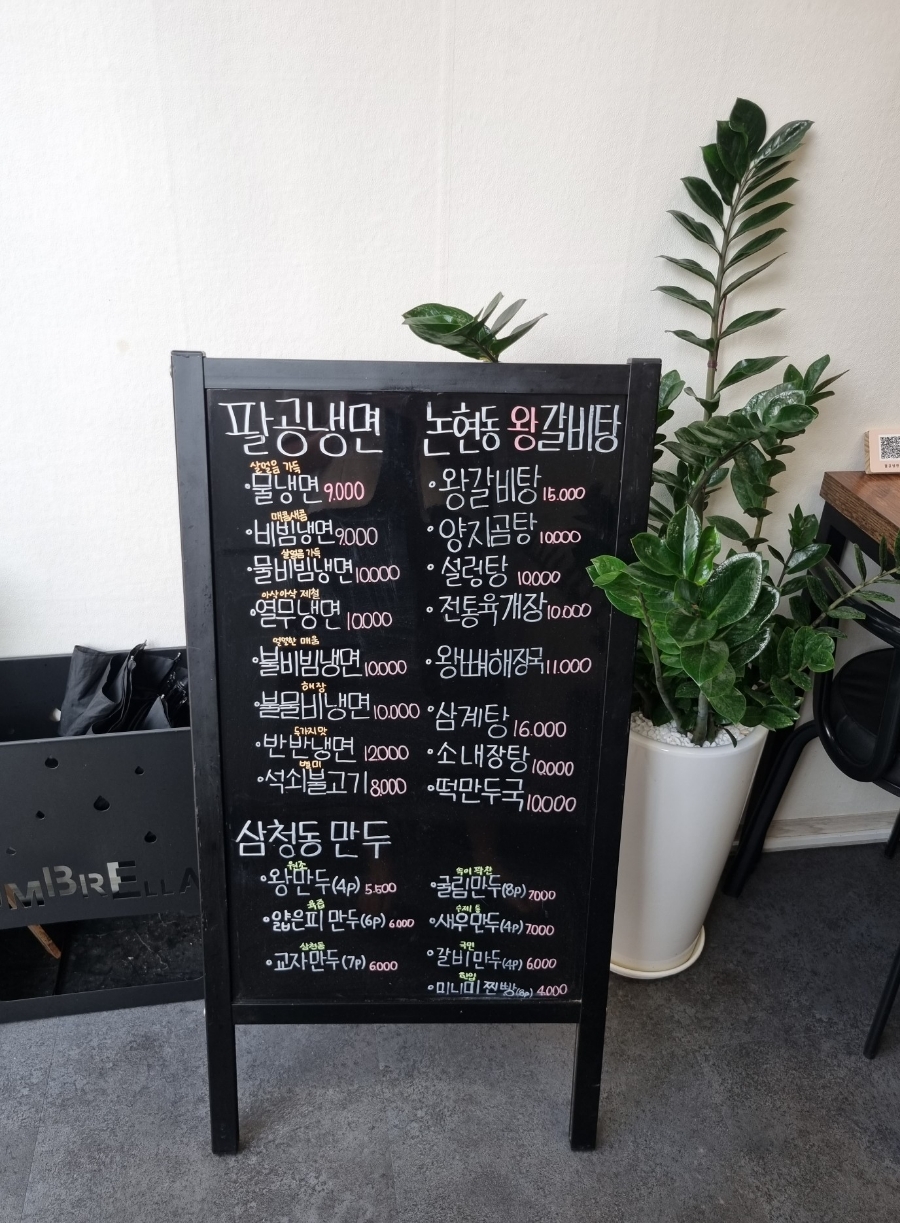 팔공냉면
살얼음 가득
·물냉면 9.000
매콤새콤
·비빔냉면 9.000
살얼음 가득
·물비빔냉면 10.000
아삭아삭 제철
·열무냉면 10.000
얼얼한 매움
·불비빔냉면 10.000
해장
·불물비냉면 10.000
두가지맛
·반반냉면 12.000
별미
·석쇠불고기 8.000
논현동 왕갈비탕
·왕갈비탕 15.000
·양지곰탕 10.000
·설렁탕 10.000
·전통육개장 10.000
·왕뼈해장국 11.000
·삼계탕 16.000
·소내장탕 10.000
·떡만두국 10.000
삼청동 만두
원조
·왕만두(4P) 5.500
육즙
·얇은피 만두(6P) 6.000
삼청동
·교자만두(7P) 6.000
속이 꽉찬
·굴림만두(8P) 7.000
·새우만두(4P) 7.000
·갈비만두(4P) 6.000
한입
·미니미 찐빵(8P) 4.000
UMBRELLA